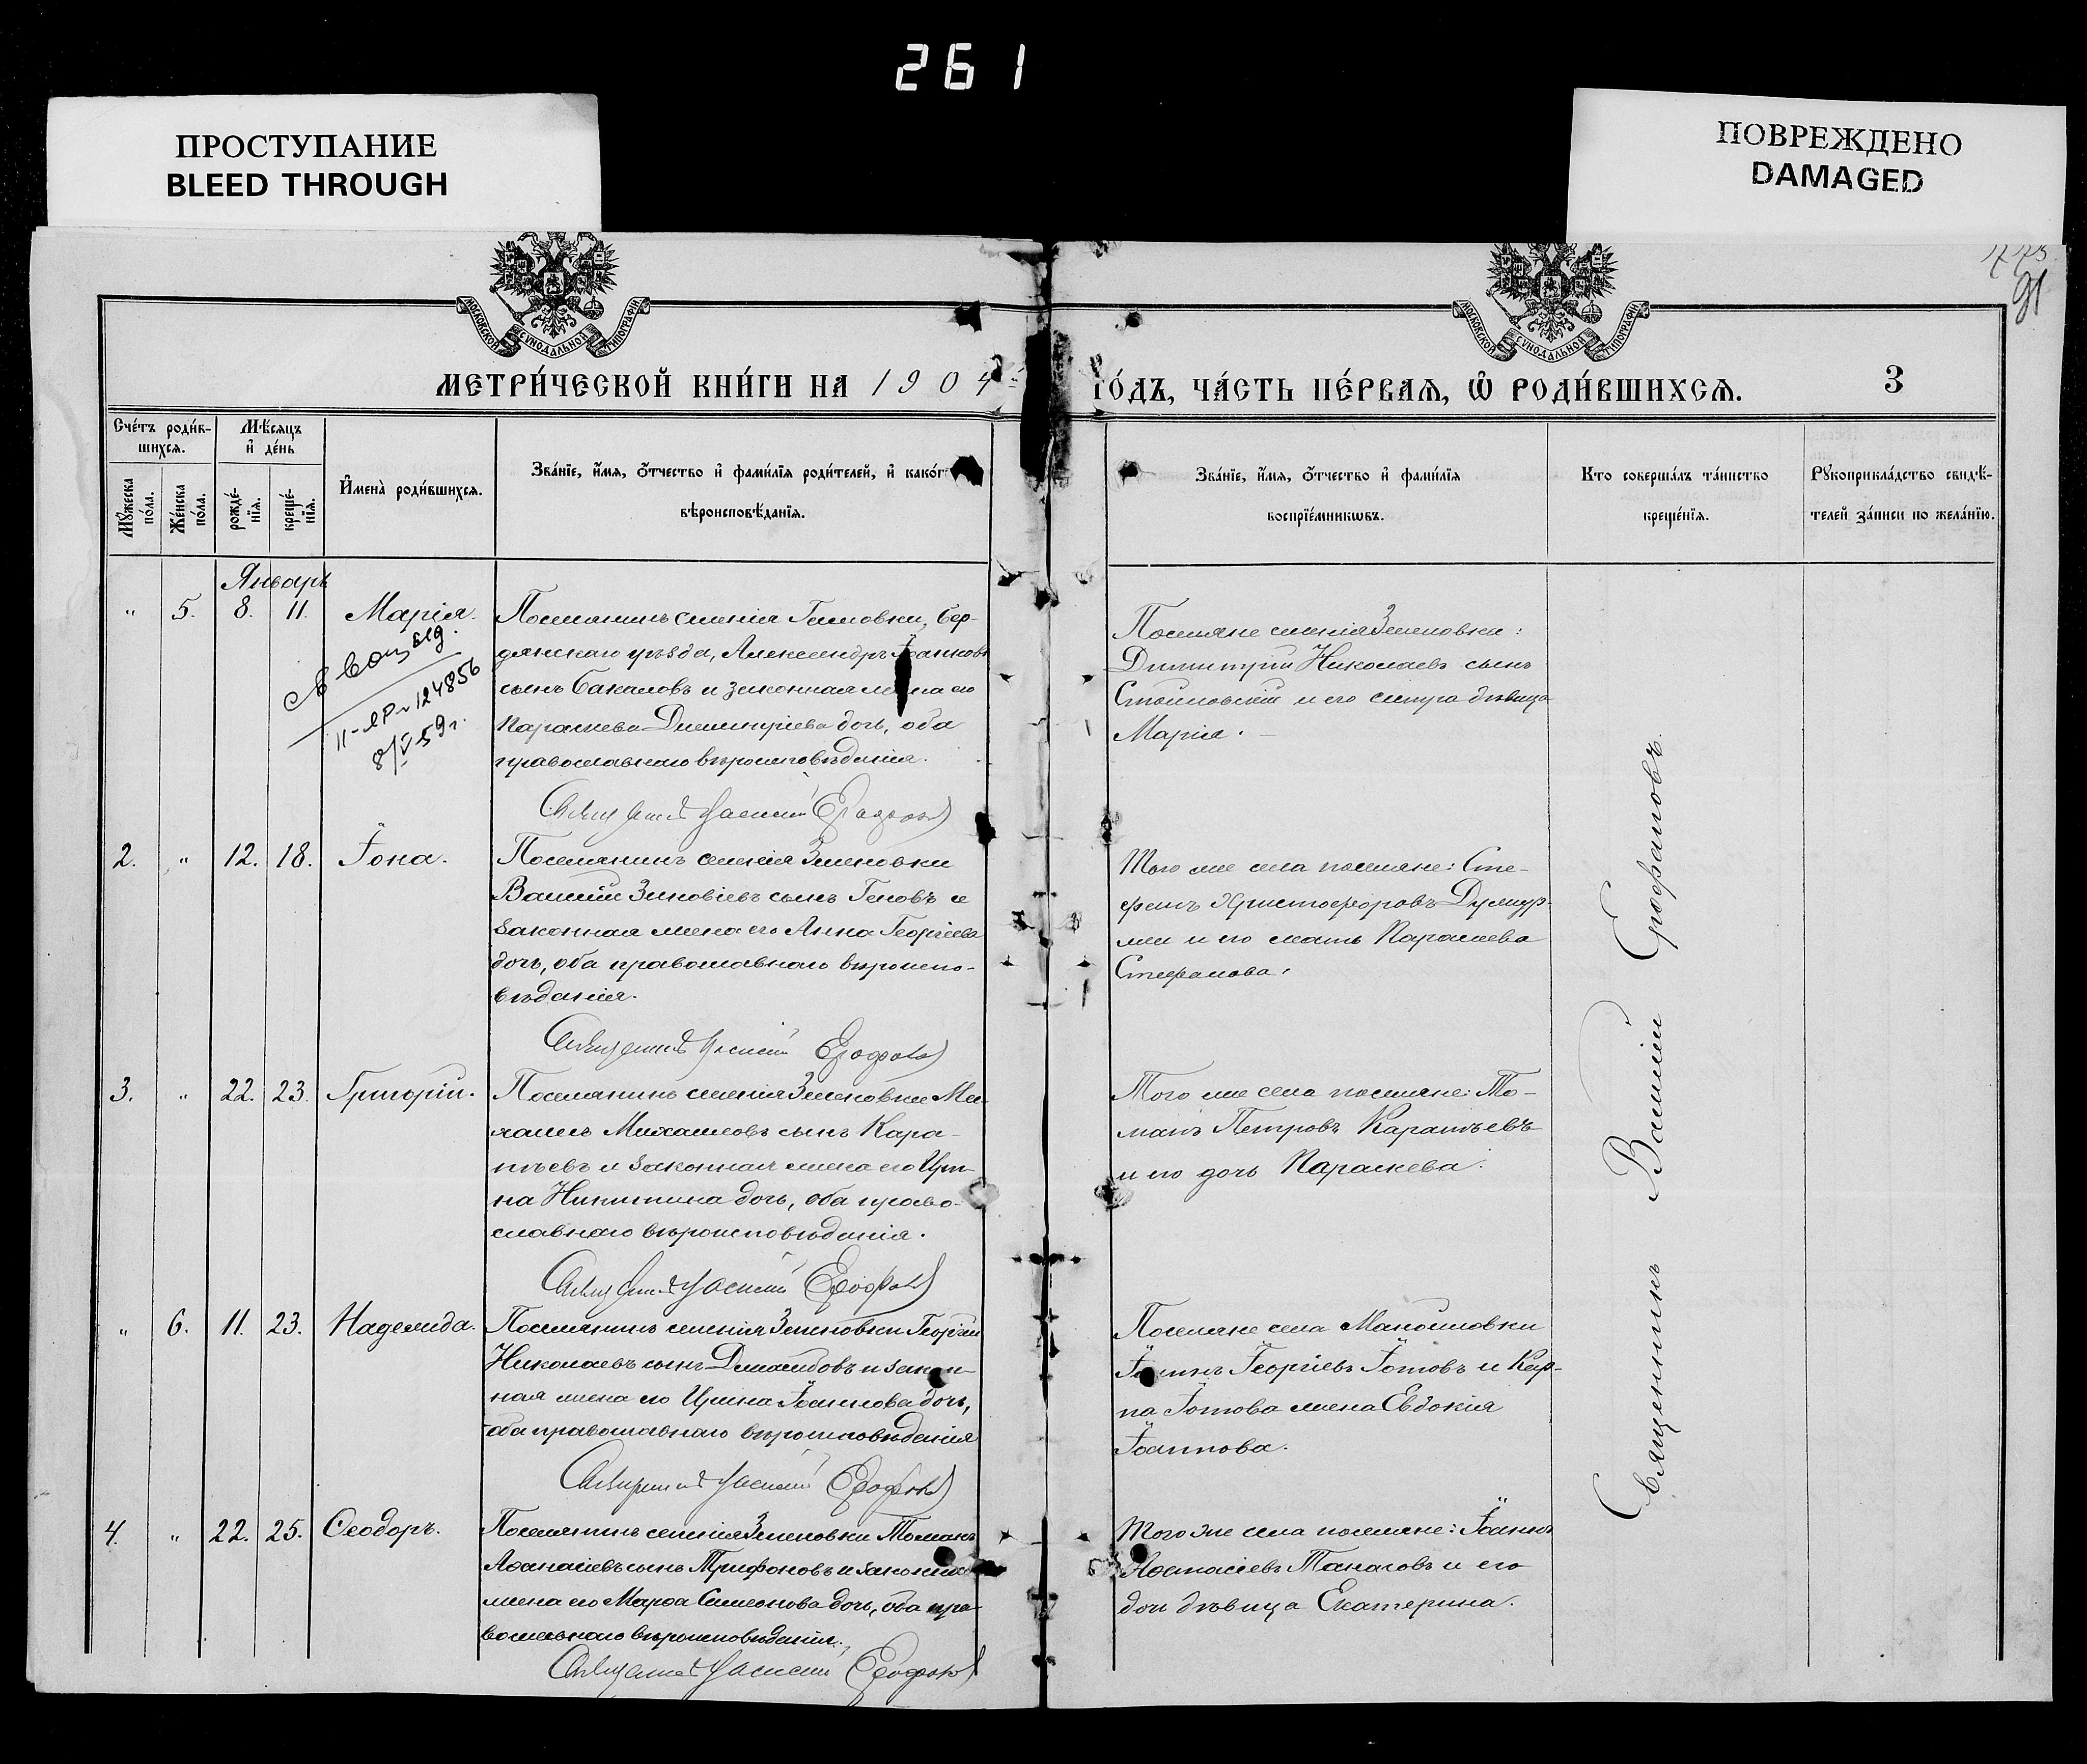 261
ПРОСТУПАНИЕ
BLEED THROUGH
ПОВРЕЖДЕНО
DAMAGED
91
МОСКОВСКОЙ СѴНОДАЛЬНОЙ ТИПОГРАФІИ
МОСКОВСКОЙ СѴНОДАЛЬНОЙ ТИПОГРАФІИ
МЕТРИ́ЧЕСКОЙ КНИ́ГИ НА 1904
ГО́ДЪ, ЧА́СТЬ ПЕ́РВАЯ, Ѡ҆ РОДИ́ВШИХСЯ.
3
Сче́тъ роди́в-
шихся.
Мꙋжеска по́ла.
Же́нска по́ла.
Мѣ́сяцъ
и҆ де́нь
рожде́-
нїя.
креще́-
нїя.
И҆мена̀ роди́вшихся.
Зва́нїе, и҆́мя, ѻ҆́тчество и҆ фами́лїя роди́телей, и҆ како́г
вѣроисповѣ́данїя.
Зва́нїе, и҆́мя, ѻ҆́тчество и҆ фами́лїя
воспрїе́мникѡвъ.
Кто соверша́лъ та́инство
креще́нїя.
Рꙋкоприкла́дство свидѣ́-
телей за́писи по жела́нїю.
Январь
„ 5. 8. 11. Марія.
Поселянинъ селенія Гюновки, Бер-
дянскаго уѣзда, Александръ Іоанновъ
сынъ Бакаловъ и законная жена его
Параскева Димитріева дочь, оба
православнаго вѣроисповѣданія.
Священникъ Василій Ерофаловъ
124856
8/V 59 г.
Поселяне селенія Зеленовки:
Димитрій Николаевъ сынъ
Стоиловскій и его сестра дѣвица
Марія.
2. „ 12. 18. Іона.
Поселянинъ селенія Зеленовки
Василій Зиновіевъ сынъ Геновъ и
законная жена его Анна Георгіева
дочь, оба православнаго вѣроиспо-
вѣданія.
Священникъ Василій
Того же села поселяне: Сте-
фанъ Христофоровъ
и его мать Параскева
Стефанова.
3. „ 22. 23. Григорій.
Поселянинъ селенія Зеленовки Ми-
хаилъ Михаиловъ сынъ Кара-
тѣевъ и законная жена его Ири-
на Никитина дочь, оба право-
славнаго вѣроисповѣданія.
Священникъ Василій
Того же села поселяне: То-
манъ Петровъ Каратѣевъ
и его дочь Параскева.
„ 6. 11. 23. Надежда.
Поселянинъ селенія Зеленовки Георгій
Николаевъ сынъ и закон-
ная жена его Ирина Іоаннова дочь,
оба православнаго вѣроисповѣданія
Священникъ Василій
Поселяне села Мануиловки
Іоаннъ Георгіевъ Іотовъ и Кар-
па Іотова жена Евдокія
Іоаннова.
4. „ 22. 25. Ѳеодоръ.
Поселянинъ селенія Зеленовки Томанъ
Аѳанасіевъ сынъ Трифоновъ и законная
жена его Марѳа Симеонова дочь, оба пра-
вославнаго вѣроисповѣданія.
Священникъ Василій
Того же села поселяне: Іоаннъ
Аѳанасіевъ Танасовъ и его
дочь дѣвица Екатерина.
Священникъ Василій